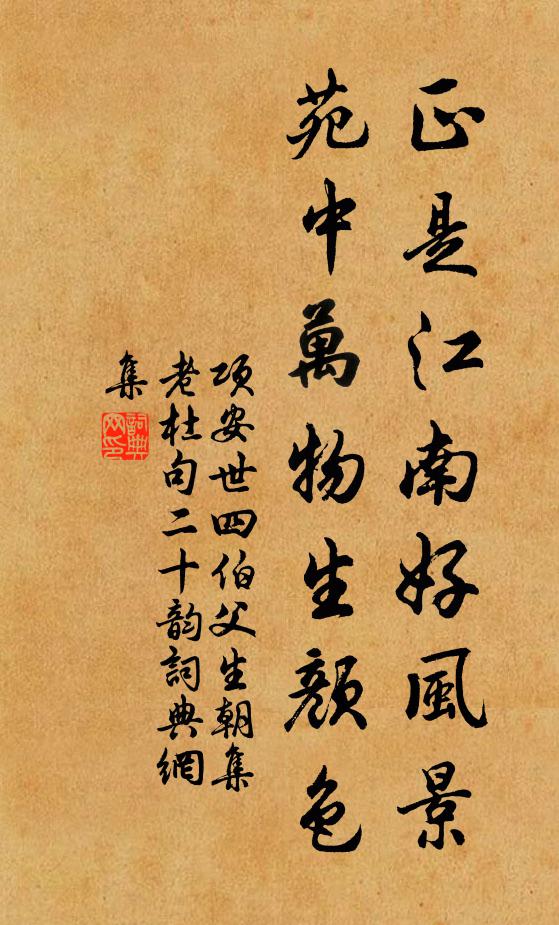 正是江南好風景
苑中萬物生顏色
項安世四伯父生朝集
老杜句二十韵詞典網
集
詞典
网印